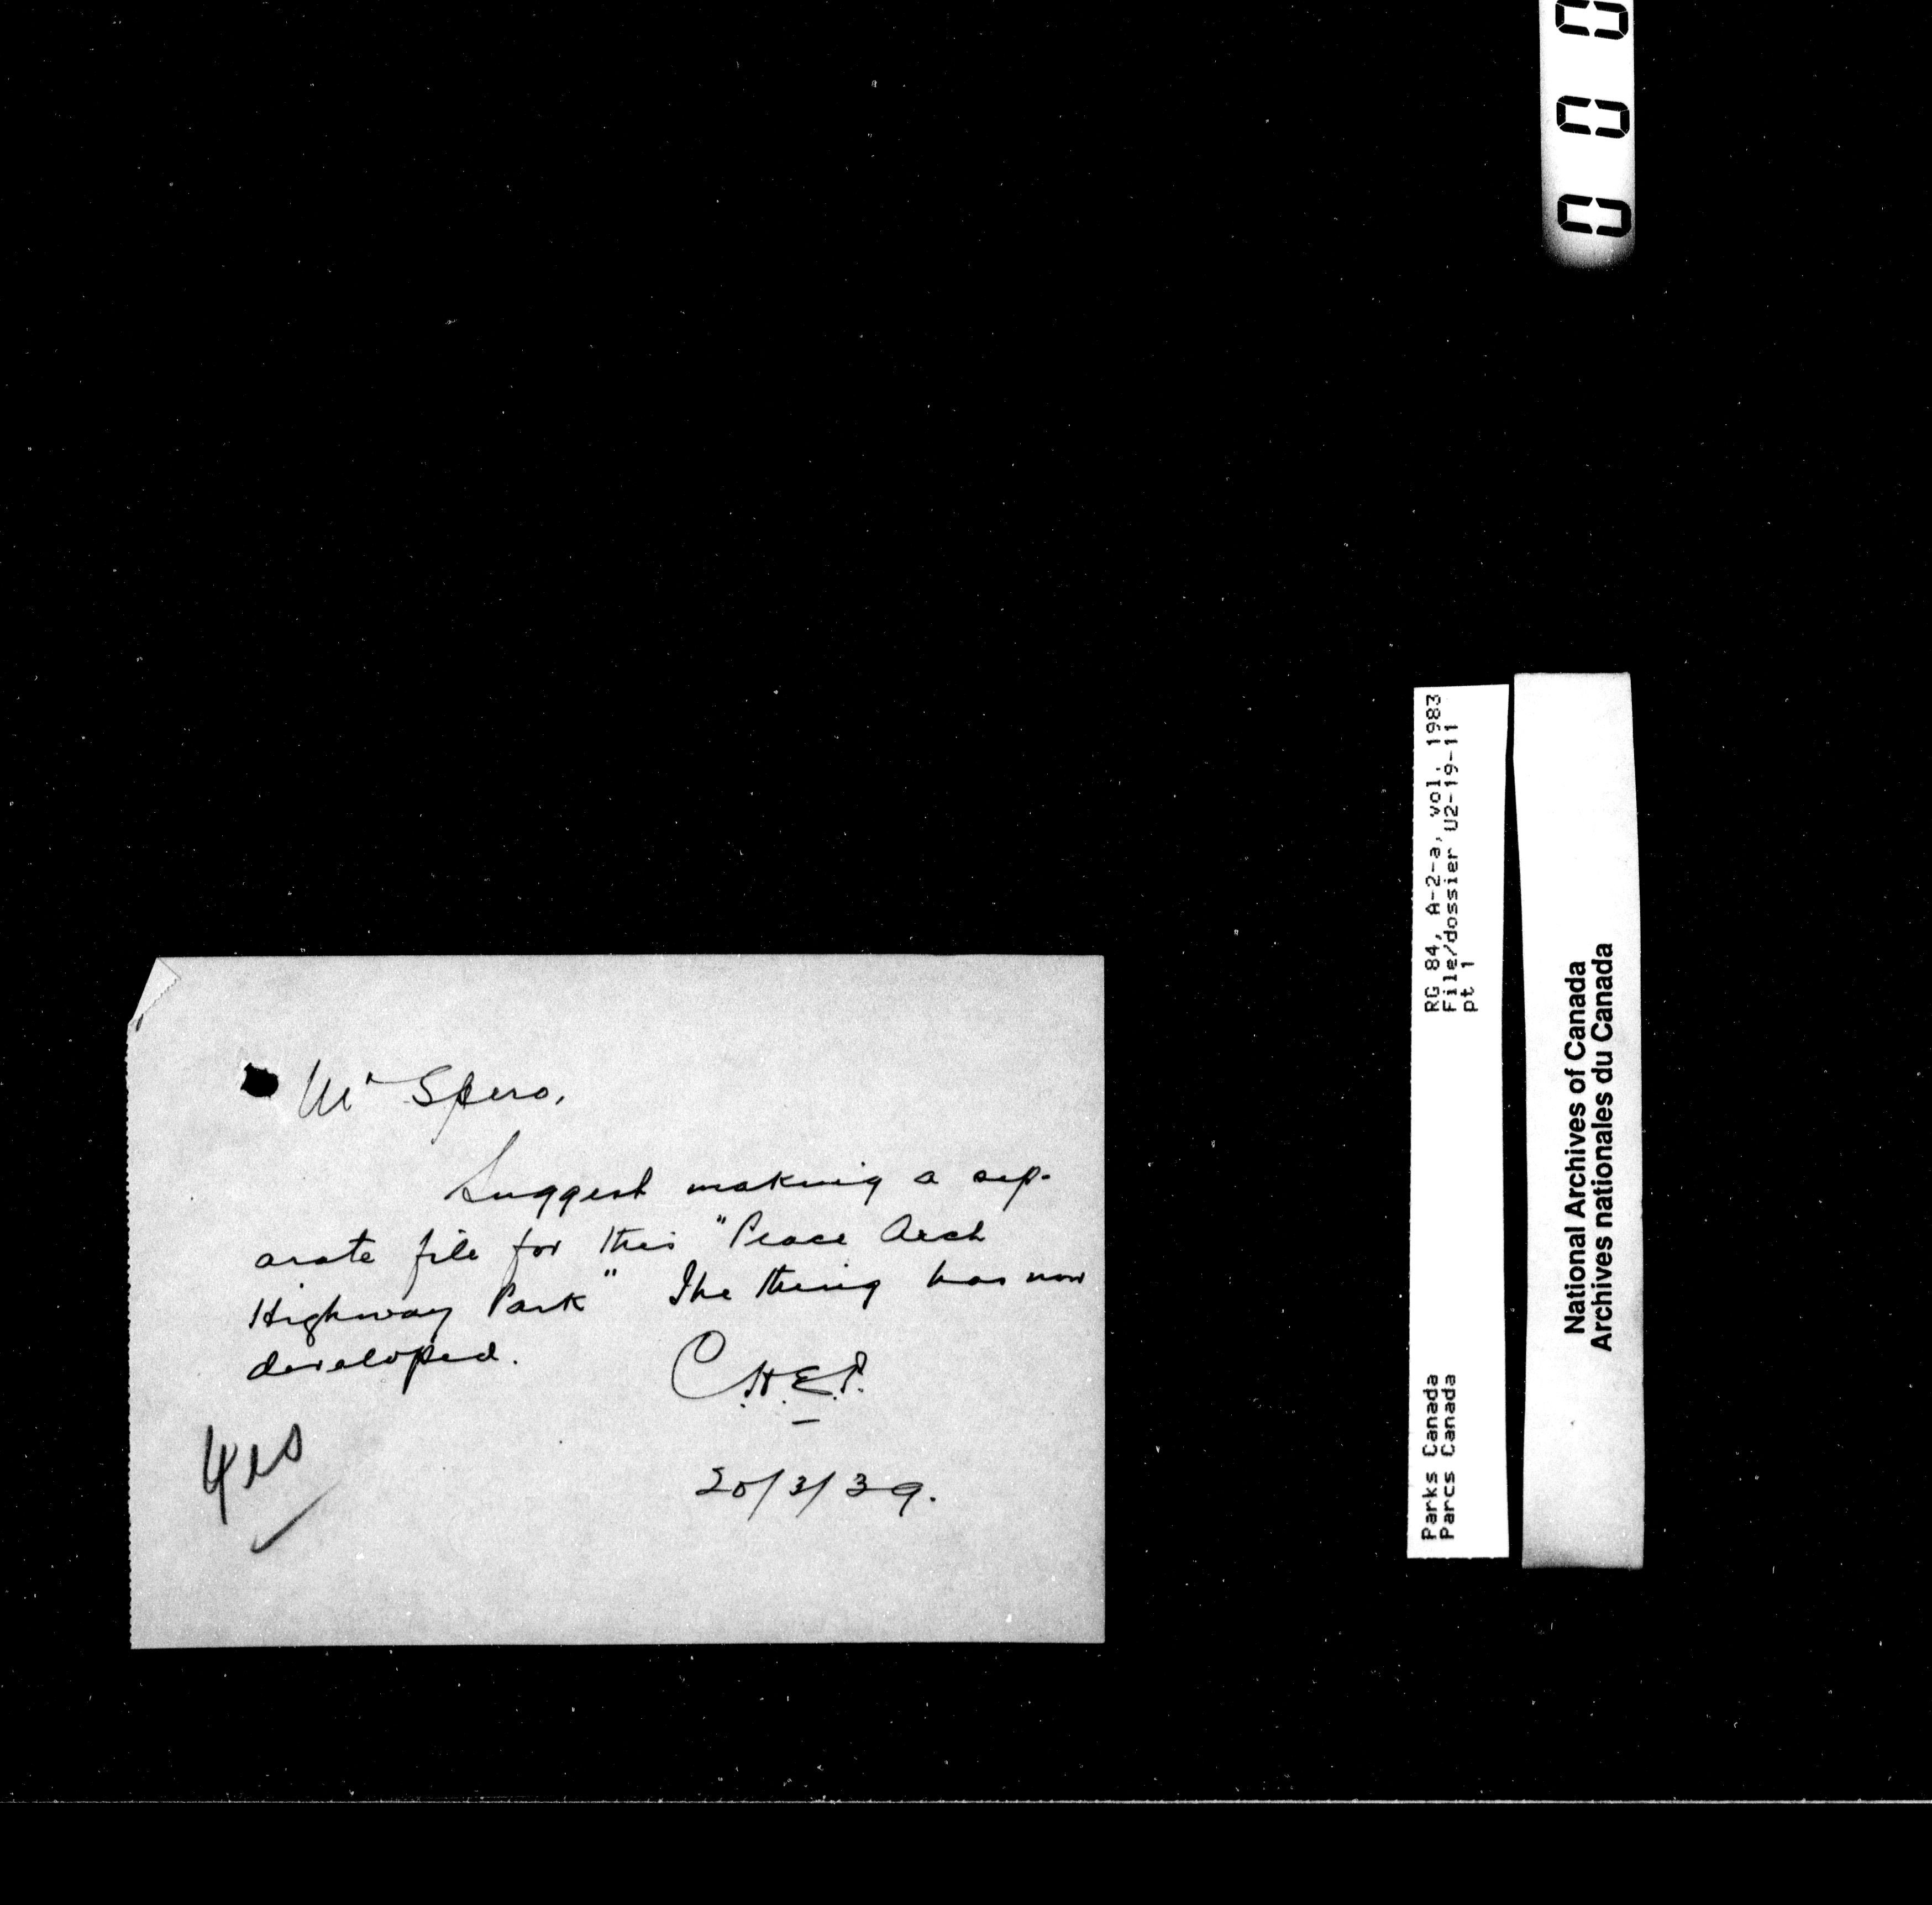 Mr Spero,
Suggest making a sep-
arate file for this "Peace Arch
Highway Park" The thing has now
developed.
C.H.E.P.
20/3/39.
Yes
RG 84, A-2-a, vol. 1983
File/dossier U2-19-11
pt 1
Parks Canada
Parcs Canada
National Archives of Canada
Archives nationales du Canada
0 0 0